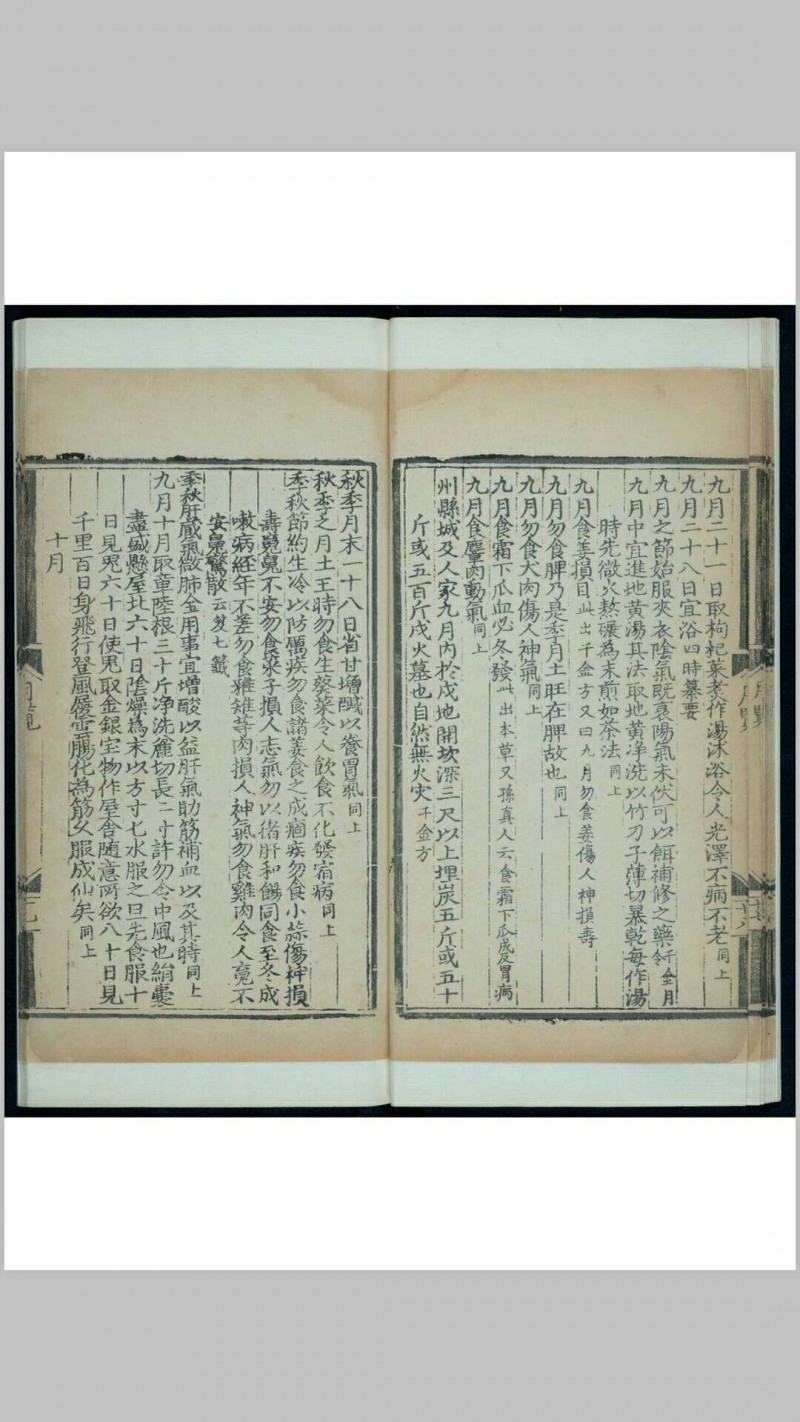 九月二十一日取枸杞菜煑作湯沐浴令人光澤不病不老同上
九月二十八日宜浴四時纂要
九月之節始服夾衣陰氣既衰陽氣未伏可以餌補修之藥千金月令
九月中宜進地黄湯其法取地黄净洗以竹刀子薄切暴乾每作湯
時先微火熬碾為末煎如茶法同上
九月食姜損目此出千金方又曰九月勿食姜傷人神損壽
九月勿食脾乃是季月土旺在脾故也同上
九月勿食犬肉傷人神氣同上
九月食霜下瓜血必冬發此出本草又孫真人云食霜下瓜成反胃病
九月食麞肉動氣同上
州縣城及人家九月内於戌地開坎深三尺以上埋炭五斤或五十
斤或五百斤戌火墓也自然無火灾千金方
月覽
秋季月末一十八日省甘增醎以養胃氣同上
秋季之月土王時勿食生葵菜令人飲食不化發宿病同上
季秋節約生冷以防厲疾勿食諸姜食之成痼疾勿食小蒜傷神損
壽魂魄不安勿食蓼子損人志氣勿以猪肝和餳同食至冬成
嗽病經年不差勿食雅雉等肉損人神氣勿食雞肉令人魂不
安魄驚散云笈七籤
季秋肝臟氣微肺金用事宜增酸以益肝氣助筋補血以及其時同上
九月十月取章陸根三十斤净洗麄切長二寸許勿令中風也絹囊
盡盛懸屋北六十日陰燥為末以方寸七水服之旦先食服十
日見鬼六十日使鬼取金銀宝物作屋舍随意所欲八十日見
千里百日身飛行登風履雲腸化為筋久服成仙矣同上
十月
月覽